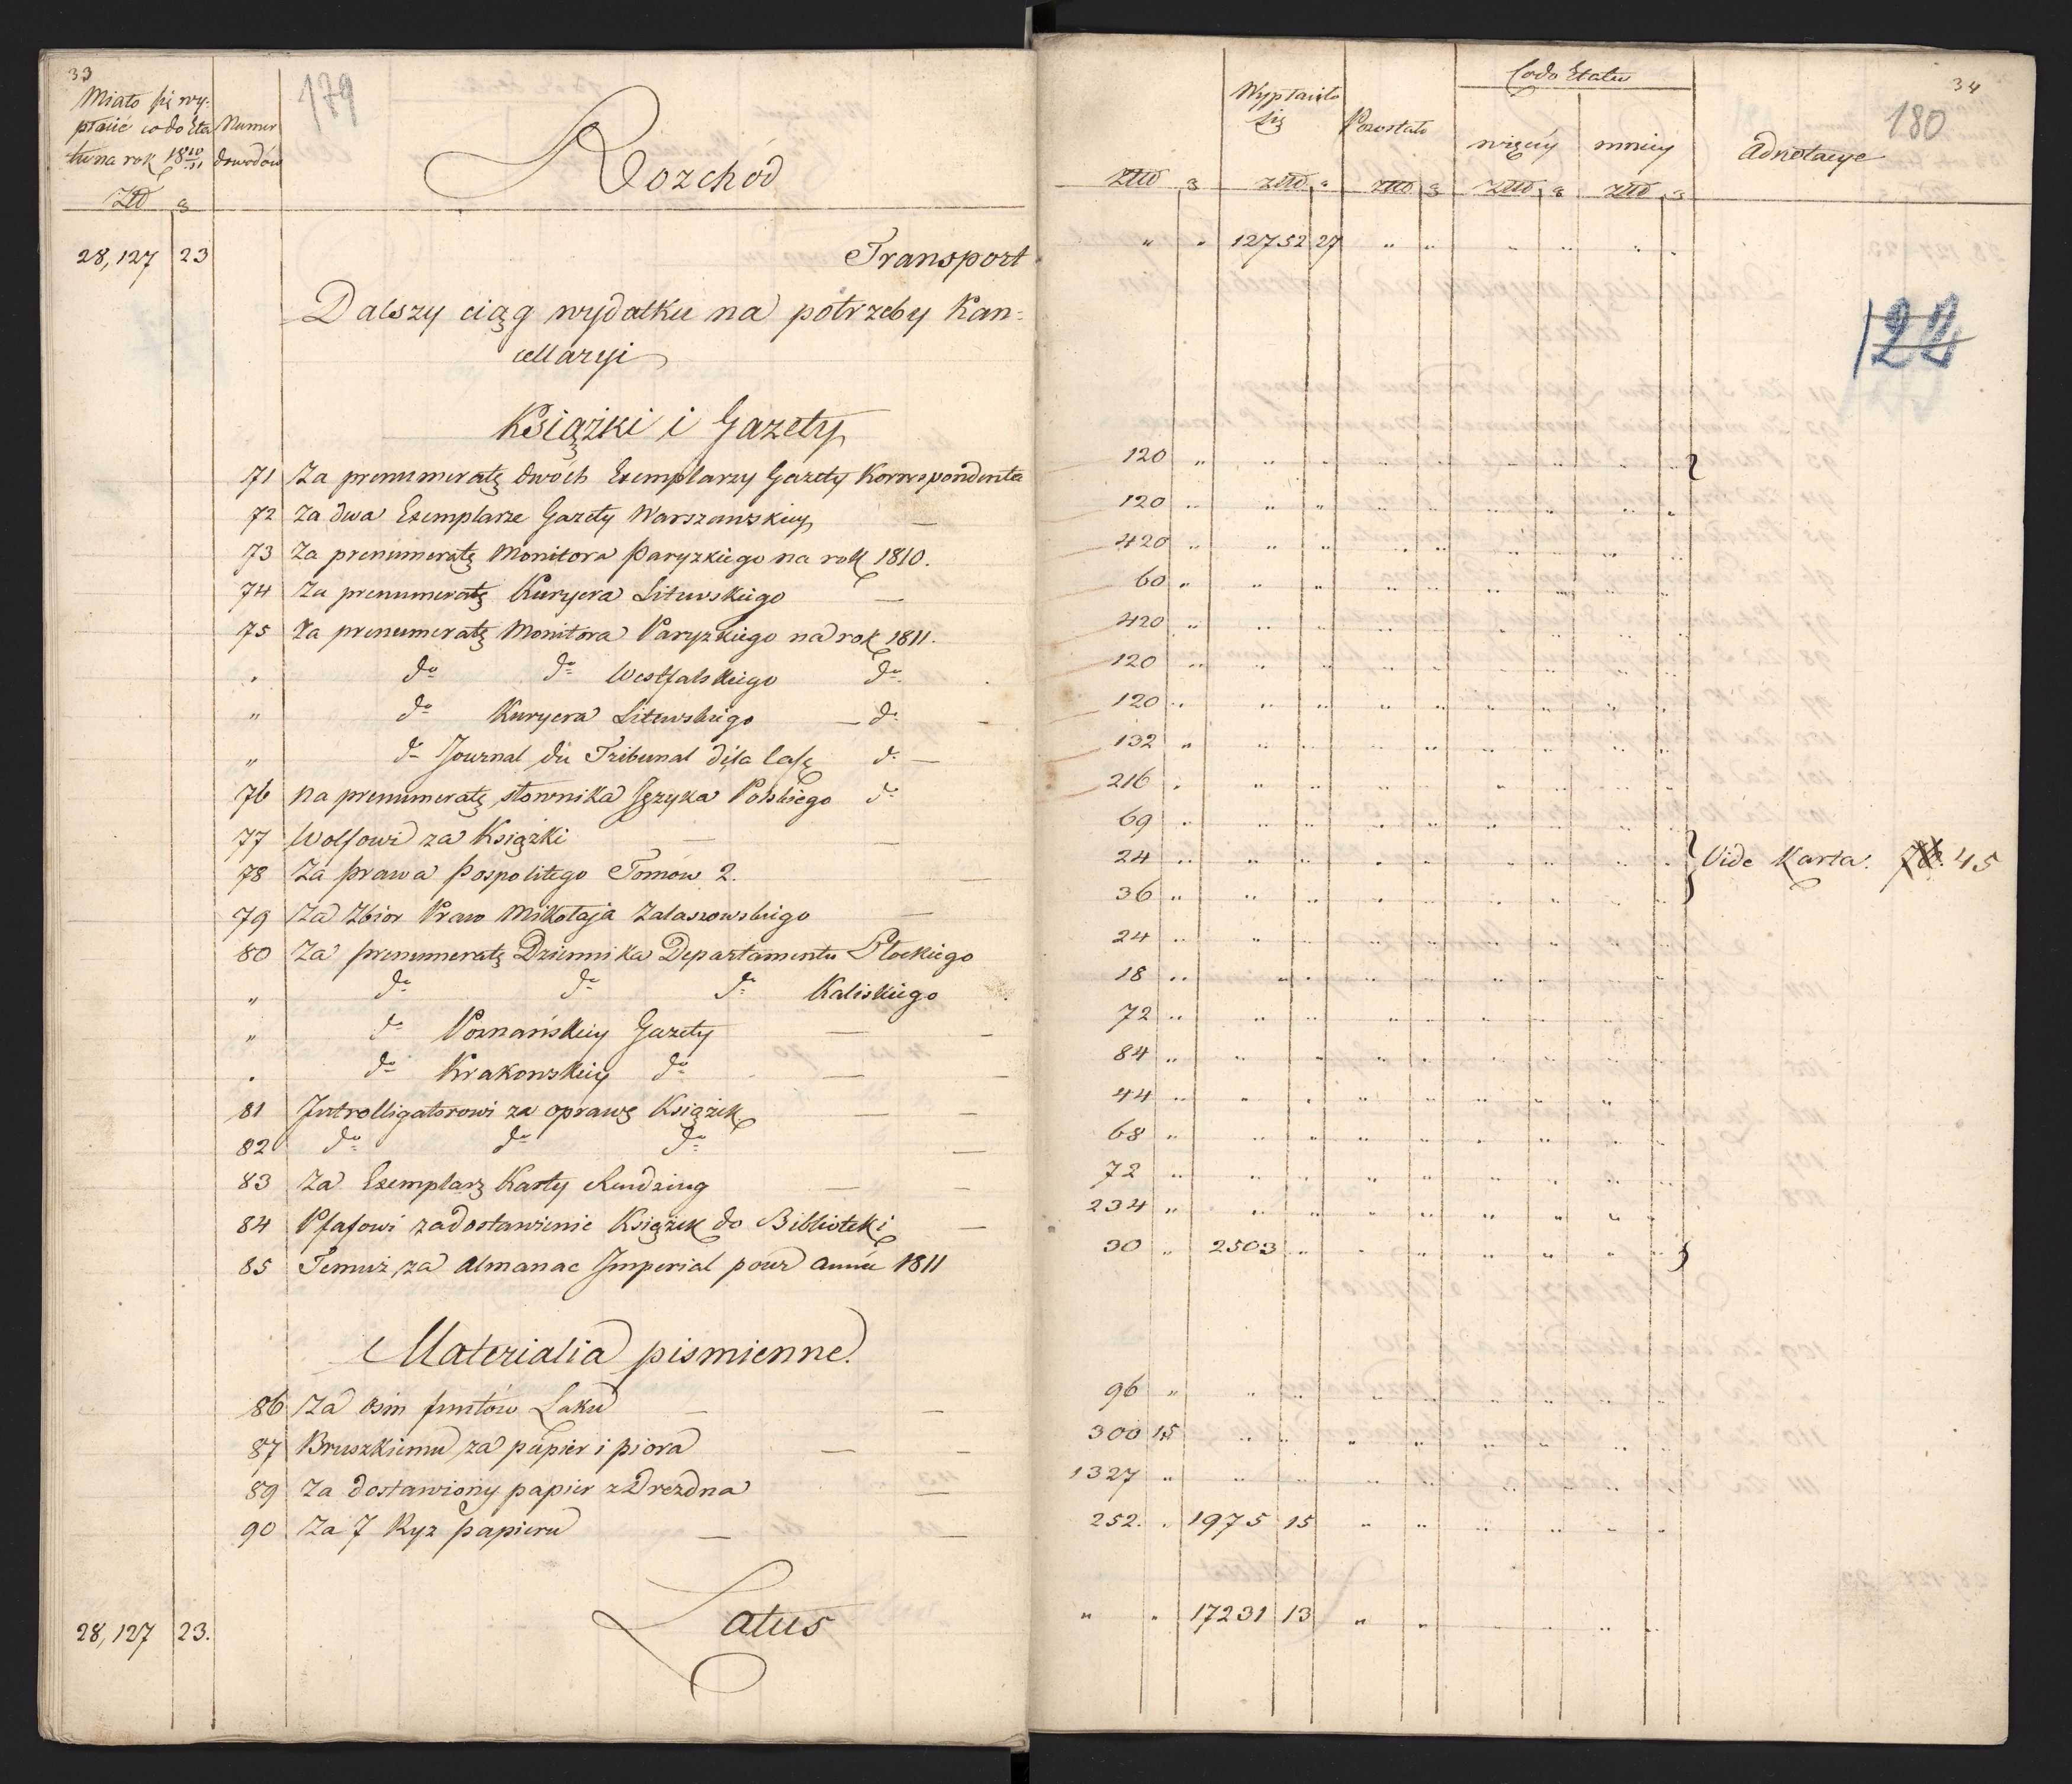 33
179
Miało się wy-
płacić co do Eta
tu na rok 18 10/11
Numer
dowodów
Złł g
Rozchód
28,127 23 Transport
Dalszy ciąg wydatku na potrzeby Kan=
cellaryi
Książki i Gazety
71 Za prenumeratę dwóch Exemplarzy Gazety Korrespondenta
72 Za dwa Exemplarze Gazety Warszawskiey —
73 Za prenumeratę Monitora Paryzkiego na rok 1810.
74 Za prenumeratę Kuryera Litewskiego —
75 Za prenumeratę Monitora Paryzkiego na rok 1811.
" do do Westfalskiego do
" do Kuryera Litewskiego — do —
" do Journal du Tribunal do —
76 Na prenumeratę słownika Języka Polskiego do
77 Wolfowi za Książki — —
78 Za Prawa Pospolitego Tomów 2. —
79 Za Zbior Praw Mikołaja Zalaszowskiego —
80 Za prenumeratę Dziennika Departamentu Płockiego
" do do do Kaliskiego
" do Poznańskiey Gazety — —
" do Krakowskiey do — —
81 Introlligatorowi za oprawę Książek — —
82 do do do —
83 Za Exemplarz Karty — —
84 Pfafowi za dostawienie Książek do Biblioteki —
85 Temuż za Almanac Imperial pour année 1811
Materialia pismienne.
86 Za osm funtów Laku — —
87 Bruszkiemu za papier i piora — —
89 Za dostawiony papier z Drezdna —
90 Za 7 Ryz papieru — —
28,127 23. Latus
34
180
Wypłaciło
się
Pozostało
Co do Etatu
więcey
mniey
Adnotacye
Złł g Złł g Złł g Złł g Złł g
" " 12752 27 " " " " " "
122
120 "
120 "
420 "
60 "
420 "
120 "
120 "
132 "
216 "
69 "
24 " Vide Karta. 45
36 "
24 "
18 "
72 "
84 "
44 "
68 "
72 "
234 "
30 " 2503 "
96 "
300 15
1327 "
252. " 1975 15
" " 17231 13 " "